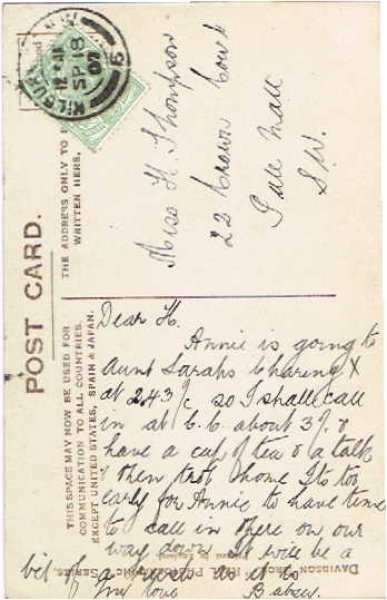 POST CARD.
THE ADDRESS ONLY TO BE
WRITTEN HERE.
THIS SPACE MAY NOW BE USED FOR
COMMUNICATION TO ALL COUNTRIES,
EXCEPT UNITED STATES, SPAIN & JAPAN.
KILBURN
12
SP 18
07
Miss H. Thompson
22 Crown Court
Pall Mall
S.W.
Dear H.
Annie is going to
Aunt Sarahs Charing X
at 2.43 so I shall call
in at C.C. about 3 &
have a cup of tea & a talk
& then trot home Its too
early for Annie to have time
to call in there on our
way down. It will be a
bit of a as it is
love
DAVIDSON BROS. REAL PHOTOGRAPHIC SERIES.